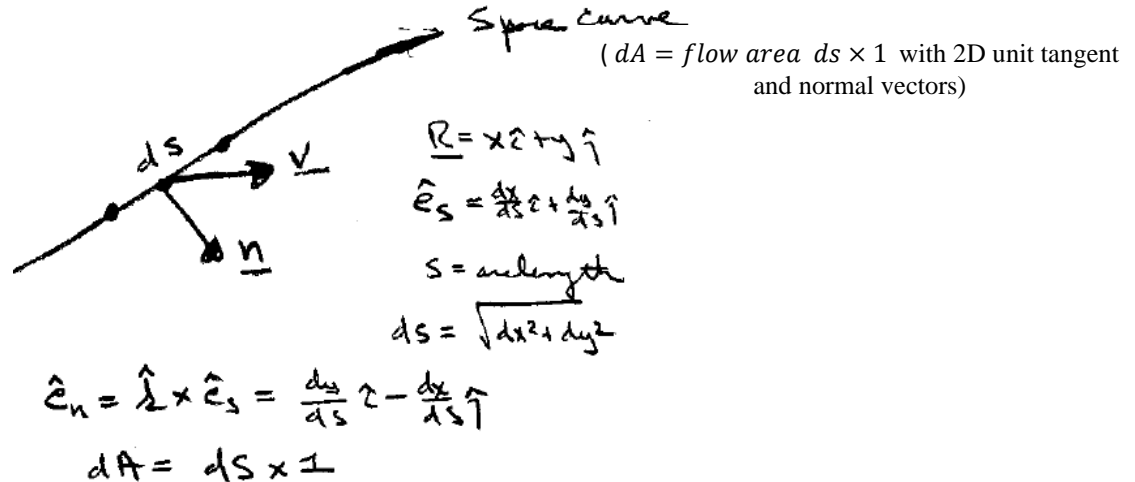 Space curve
( dA = flow area ds × 1 with 2D unit tangent
and normal vectors)
ds
V
n
R = xî + yĵ
ê_s = dx/ds î + dy/ds ĵ
s = arclength
ds = √(dx² + dy²)
ê_n = k̂ × ê_s = dy/ds î − dx/ds ĵ
dA = ds × 1